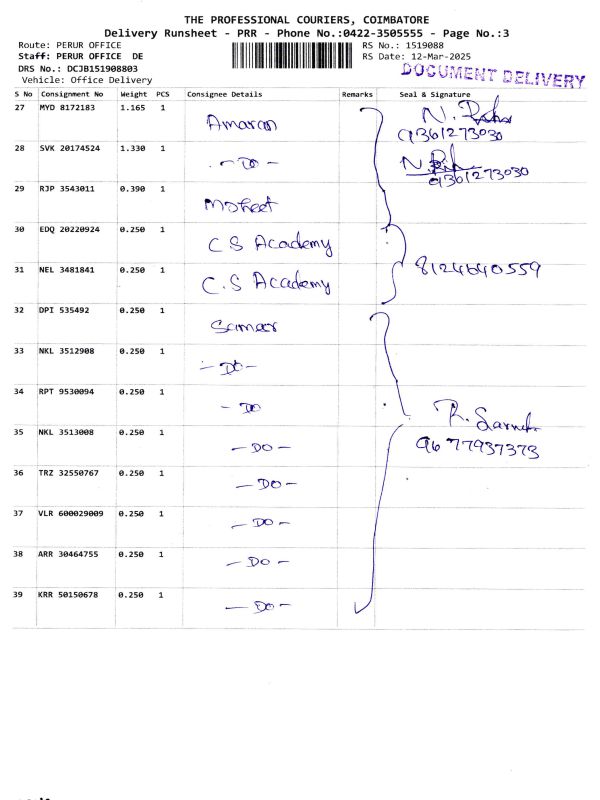 THE PROFESSIONAL COURIERS, COIMBATORE
Delivery Runsheet - PRR - Phone No.:0422-3505555 - Page No.:3
Route: PERUR OFFICE RS No.: 1519088
Staff: PERUR OFFICE DE RS Date: 12-Mar-2025
DRS No.: DCJB151908803 DOCUMENT DELIVERY
Vehicle: Office Delivery
S No Consignment No Weight PCS Consignee Details Remarks Seal & Signature
27 MYD 8172183 1.165 1 Amaran N.
9361273030
28 SVK 20174524 1.330 1 - Do - N.
9361273030
29 RJP 3543011 0.390 1
30 EDQ 20220924 0.250 1 C S Academy
31 NEL 3481841 0.250 1 C.S Academy 8124640559
32 DPI 535492 0.250 1
33 NKL 3512908 0.250 1 - Do -
34 RPT 9530094 0.250 1 - Do
35 NKL 3513008 0.250 1 - Do - R.
9677937373
36 TRZ 32550767 0.250 1 - Do -
37 VLR 600029009 0.250 1 - Do -
38 ARR 30464755 0.250 1 - Do -
39 KRR 50150678 0.250 1 - Do -